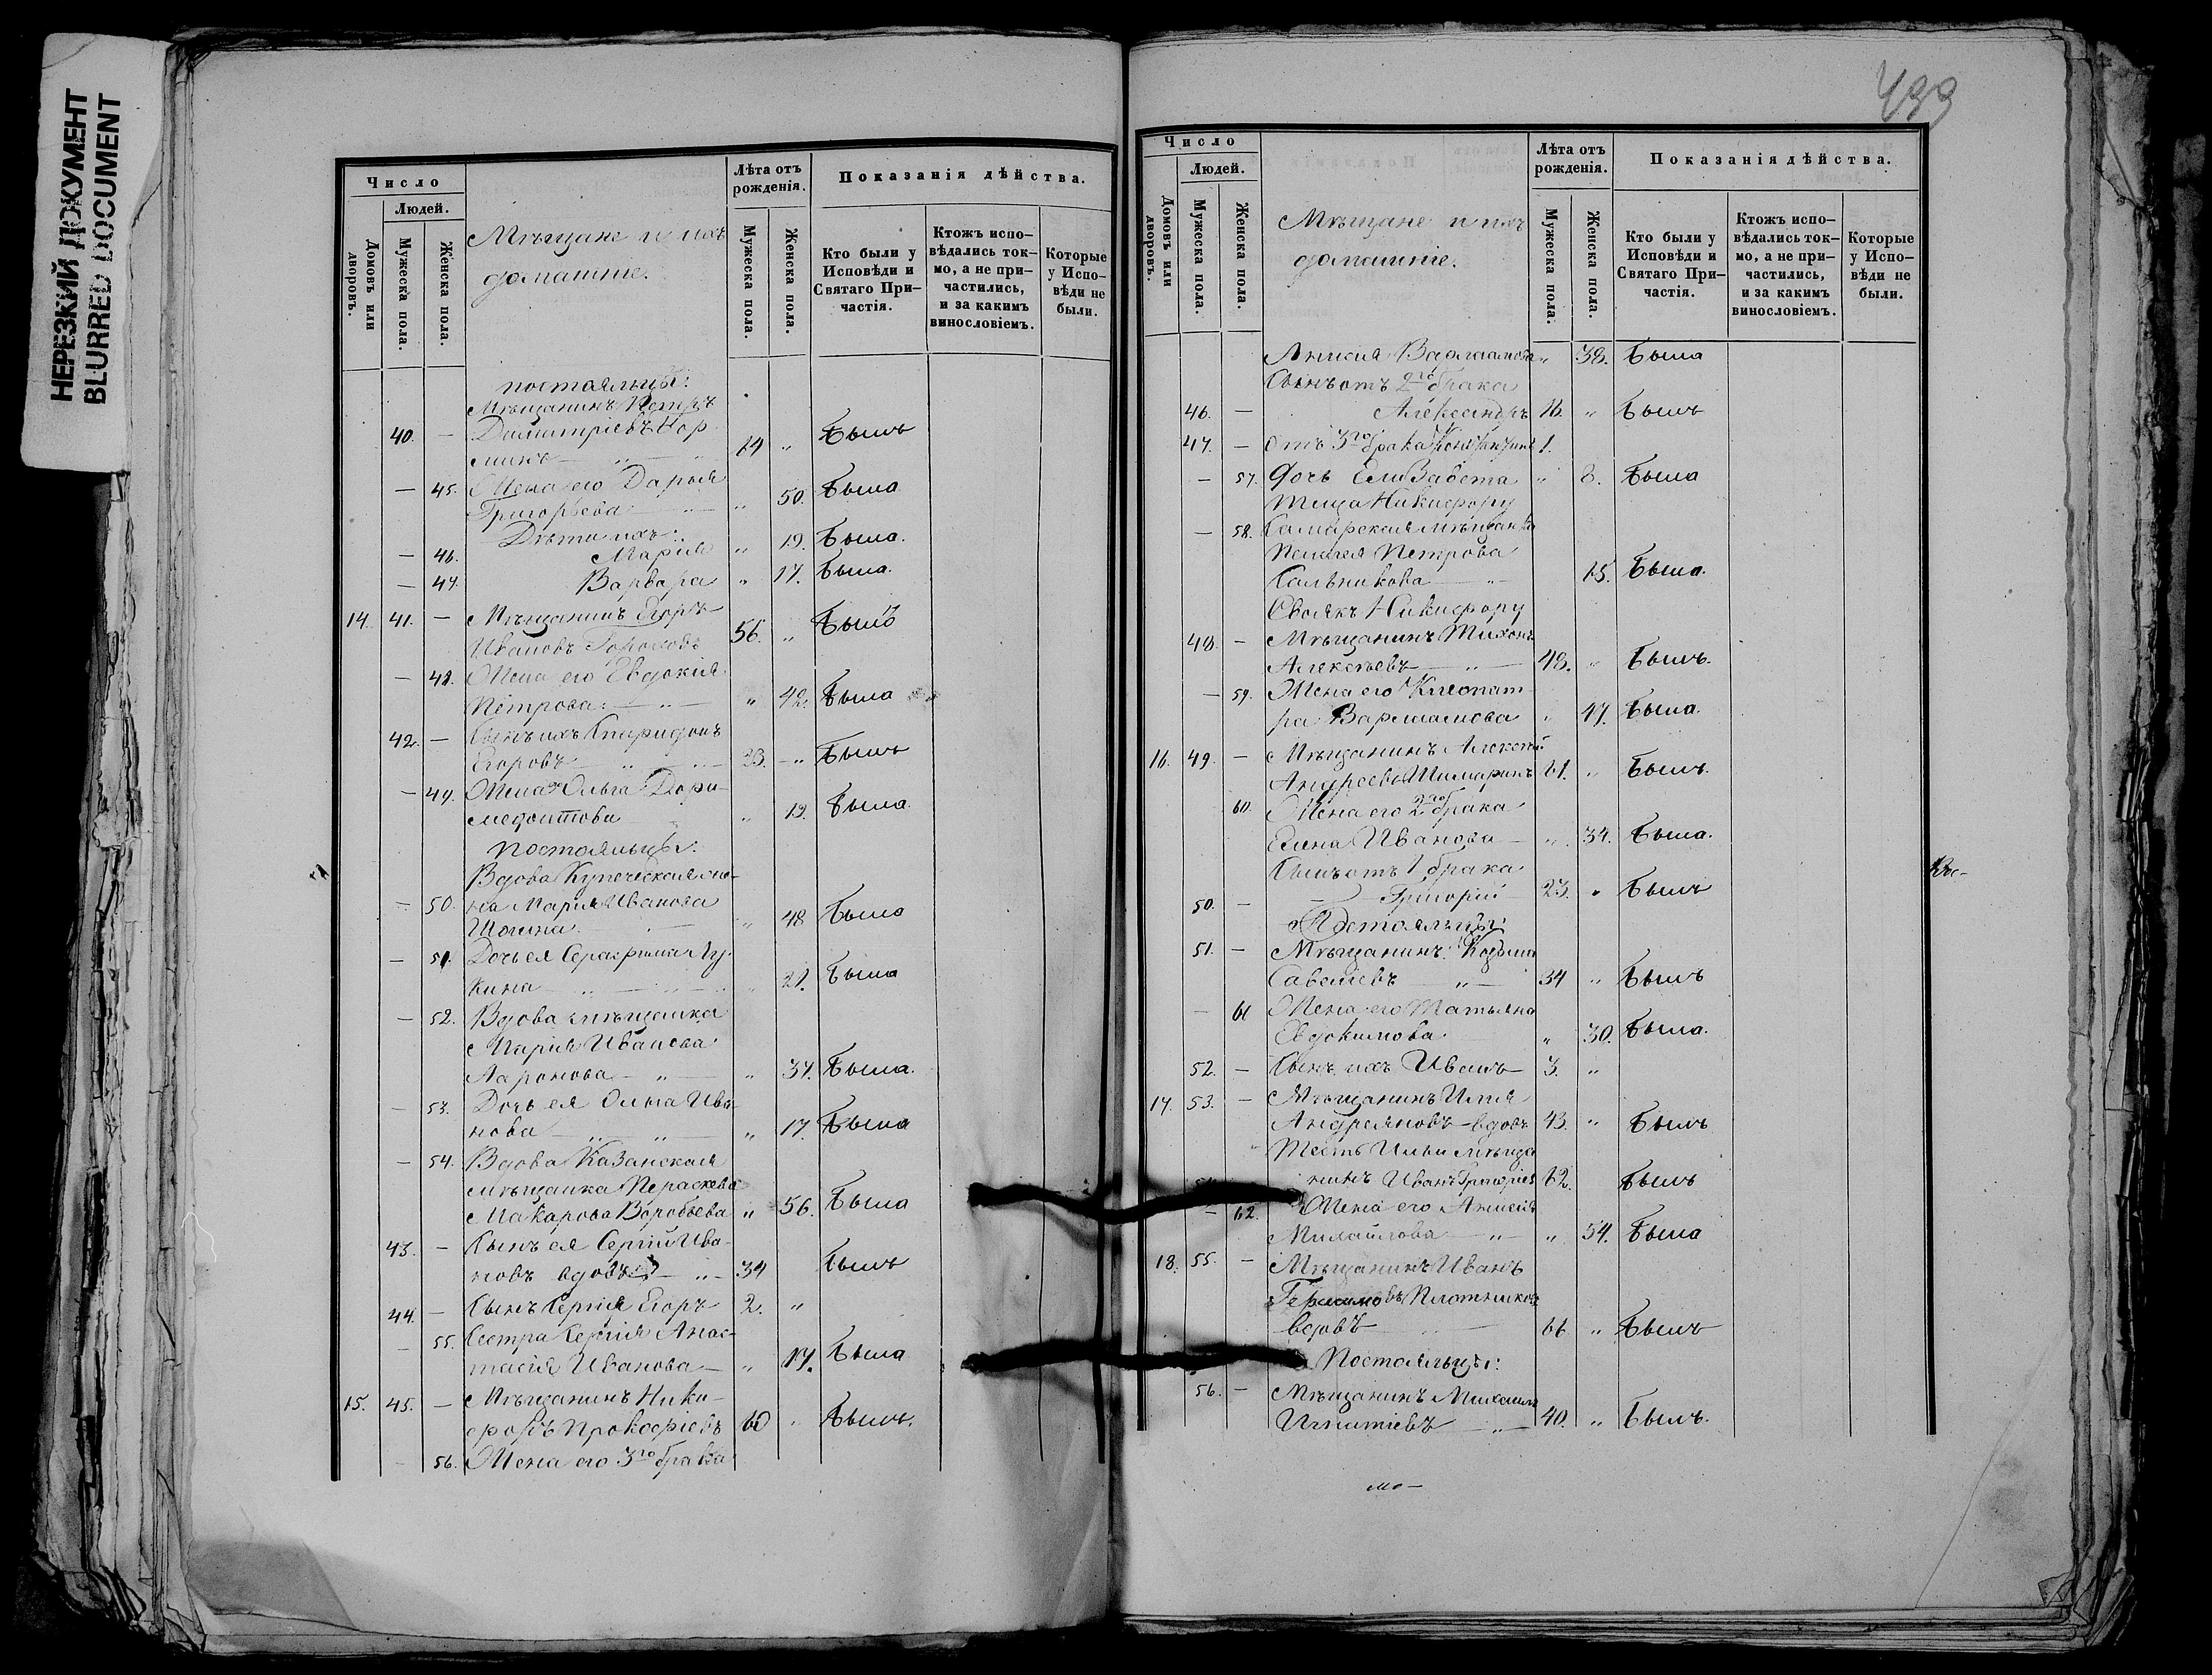 НЕРЕЗКИЙ ДОКУМЕНТ
BLURRED DOCUMENT
Число
Людей.
Домовъ или дворовъ.
Мужеска пола.
Женска пола.
Мѣщане и ихъ
домашніе.
Лѣта отъ рожденія.
Мужеска пола.
Женска пола.
Показанія дѣйства.
Кто были у Исповѣди и Святаго При–частія.
Ктожъ испо–вѣдались ток–мо, а не при–частились, и за какимъ винословіемъ.
Которые у Испо–вѣди не были.
постояльцы:
Мѣщанинъ Петръ
40. — Димитріевъ
14 " Былъ
— 45. Жена его Дарья
Григорьева " 50. Была
Дѣти ихъ:
— 46. Марія " 19. Была.
— 47 Варвара " 17. Была.
14. 41. — Мѣщанинъ Егоръ
Ивановъ Гороховъ 56. " Былъ
— 48. Жена его Евдокія
Петрова — " — " 42. Была
42. — Сынъ ихъ Спиридонъ
Егоровъ — " — 23. " Былъ
— 49. Жена Ольга Дори–
медонтова " 19. Была.
постояльцы:
Вдова Купеческая же–
— 50. на Марія Иванова
" 48 Была
— 51. Дочь ея Серафима Лу–
кина — " — " 27. Была
— 52. Вдова мѣщанка
Марія Иванова
Ларонова — " — " 37. Была.
— 53. Дочь ея Ольга Ива–
нова — " — " — " 17. Была
— 54. Вдова Казанская
мѣщанка Параскева
Макарова Воробьева " 56. Была
43. — Сынъ ея Сергій Ива–
новъ вдовъ — " — 34 Былъ
44. — Сынъ Сергія Егоръ 2. "
— 55. Сестра Сергія Анас–
тасія Иванова — " 17. Была
15. 45. — Мѣщанинъ Ники–
форъ Прокофіевъ 60 " Былъ.
— 56. Жена его 3го брака
499
Число
Людей.
Домовъ или дворовъ.
Мужеска пола.
Женска пола.
Мѣщане и ихъ
домашніе.
Лѣта отъ рожденія.
Мужеска пола.
Женска пола.
Показанія дѣйства.
Кто были у Исповѣди и Святаго При–частія.
Ктожъ испо–вѣдались ток–мо, а не при–частились, и за какимъ винословіемъ.
Которые у Испо–вѣди не были.
Анисія Варлаамова " 38. Была
Сынъ отъ 2го брака
46. — Александръ 16. " Былъ
47. — Отъ 3го брака Константинъ 1.
— 57. Дочь Елизавета " 8. Была
Теща Никифору
— 58. Самарская мѣщанка
Пелагея Петрова
Сальникова — " — 75. Была.
Своякъ Никифору
48. — Мѣщанинъ Тихонъ
Алексѣевъ — " — 48. " Былъ.
— 59. Жена его Клеопат
ра Варлаамова " 47. Была.
16. 49. — Мѣщанинъ Алексѣй
Андреевъ 61. " Былъ.
60. Жена его 2го брака
Елена Иванова — " 34. Была.
Сынъ отъ 1 брака
50. — Григорій 23. " Былъ
Постояльцы:
51. — Мѣщанинъ Козьма
Савельевъ — " — 34 " Былъ
— 61 Жена его Татьяна
Евдокимова " 30. Была.
52. — Сынъ ихъ Иванъ 3. "
17. 53. — Мѣщанинъ Илья
Андреяновъ — вдовъ 43. " Былъ
Тесть Ильи мѣща
нинъ Иванъ Григорьевъ 62. Былъ
— 62. Жена его Анисія
Михайлова — " — " 54. Была
18. 55. — Мѣщанинъ Иванъ
Герасимовъ Плотниковъ
вдовъ 66. " Былъ
Постояльцы:
56. — Мѣщанинъ Михаилъ
Игнатіевъ — " — 40. " Былъ.
мо —